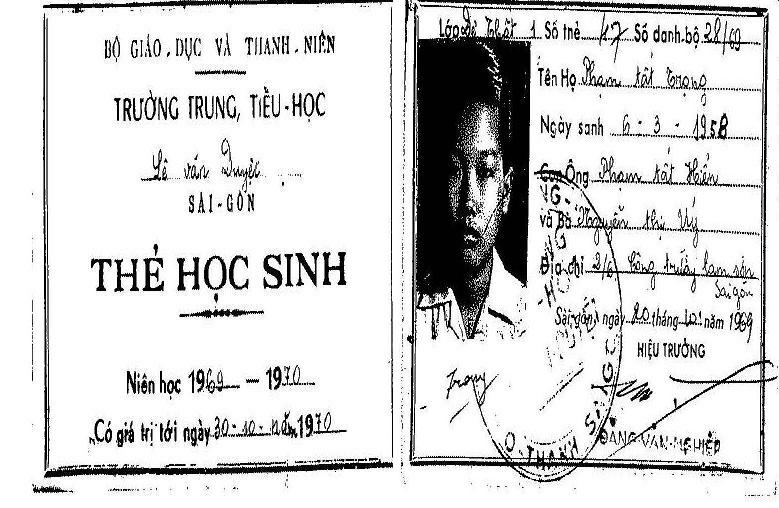 BỘ GIÁO.DỤC VÀ THANH.NIÊN
TRƯỜNG TRUNG, TIỀU-HỌC
Lê văn Duyệt
SÀI-GÒN
THẺ HỌC SINH
Niên học 1969 - 1970
Có giá trị tới ngày 30-10-năm 1970
Lớp Đệ thất 1 Số trẻ 47 Số danh-bộ 28/69
Tên Họ Phạm tất Trọng
Ngày sanh 6-3-1958
Con Ông Phạm tất Hiển
và Bà Nguyễn thị Uý
Địa chỉ 2/6 Công trường lam sơn
Saigon
Sài-gòn, ngày 20 tháng 10 năm 1969
HIỆU TRƯỞNG
Trọng
O THANH S
ĐẶNG-VĂN-NGHIỆP